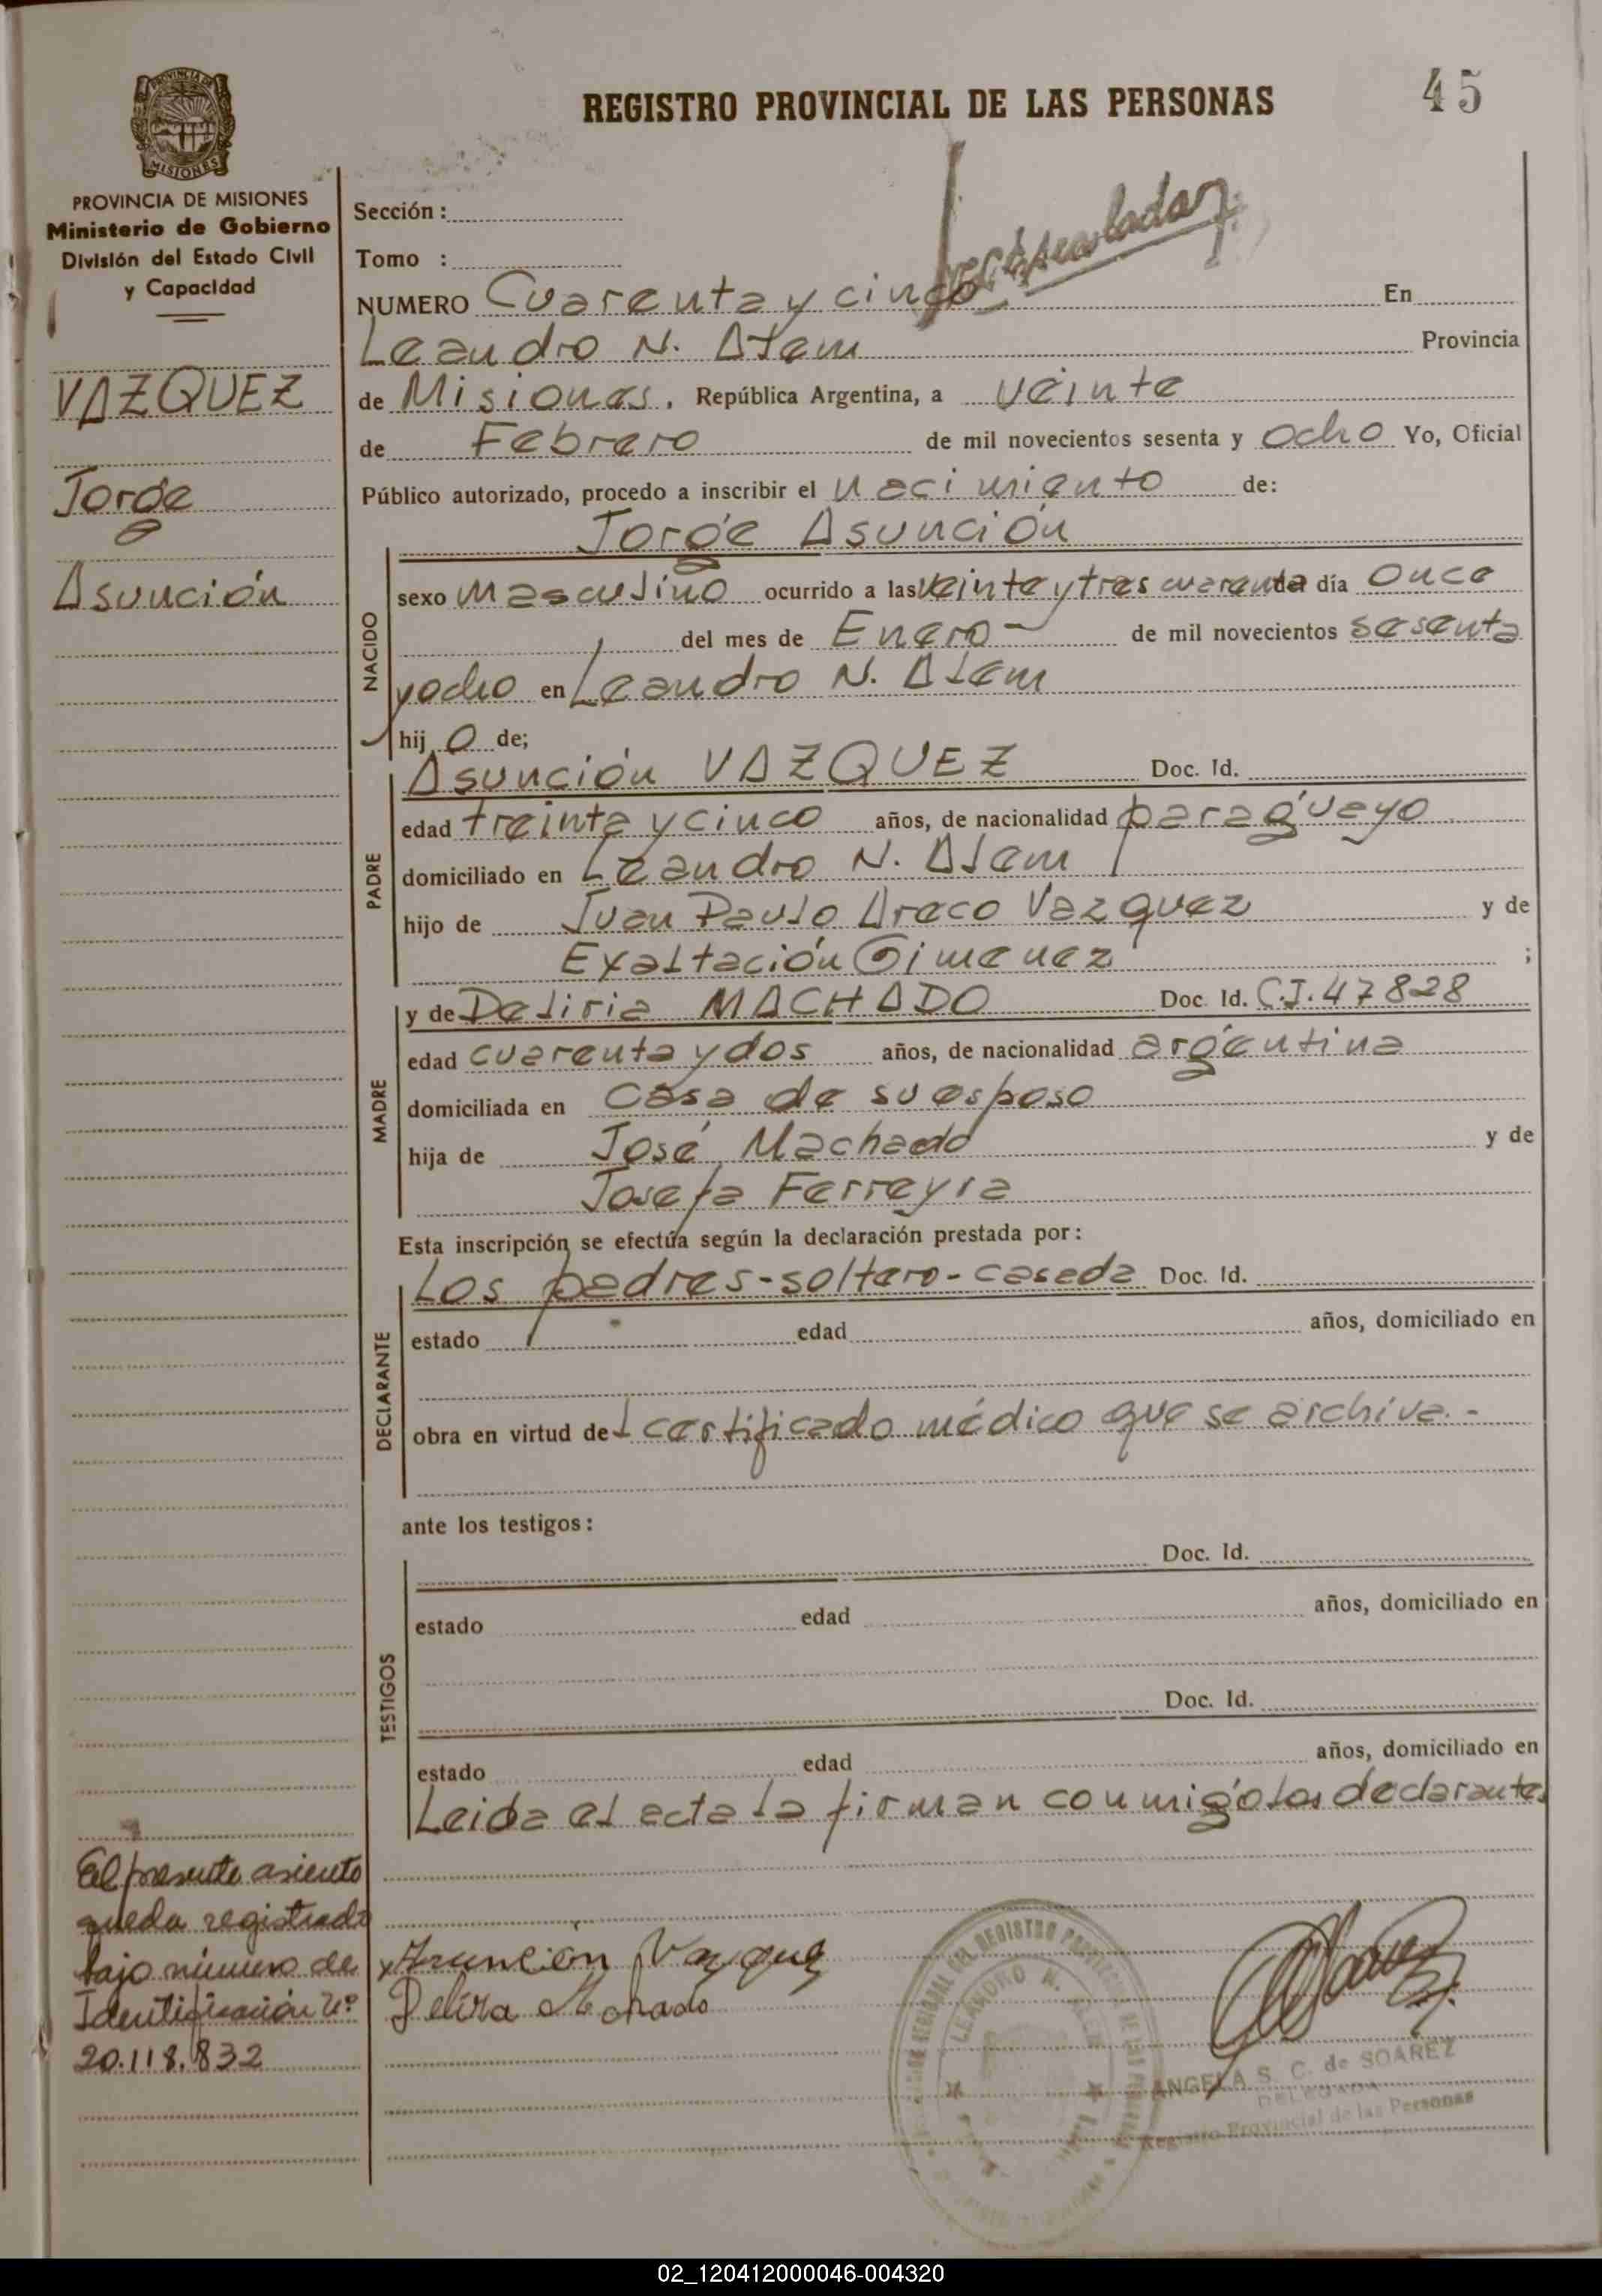 REGISTRO PROVINCIAL DE LAS PERSONAS
45
PROVINCIA DE MISIONES
Ministerio de Gobierno
División del Estado Civil
y Capacidad
VAZQUEZ
Jorge
Asunción
Sección :
Tomo :
NUMERO Cuarenta y cinco En
Leandro N. Alem Provincia
de Misiones. República Argentina, a veinte
de Febrero de mil novecientos sesenta y ocho Yo, Oficial
Público autorizado, procedo a inscribir el nacimiento de:
Jorge Asunción
NACIDO
sexo masculino ocurrido a las veinte y tres cuarenta del día once
del mes de Enero - de mil novecientos sesenta
y ocho en Leandro N. Alem
hij o de;
PADRE
Asunción VAZQUEZ Doc. Id.
edad treinta y cinco años, de nacionalidad paraguayo
domiciliado en Leandro N. Alem
hijo de Juan Paulo Areco Vazquez y de
Exaltación Gimenez ;
MADRE
y de Deliria MACHADO Doc. Id. C.I. 47828
edad cuarenta y dos años, de nacionalidad argentina
domiciliada en casa de su esposo
hija de José Machado y de
Josefa Ferreyra
Esta inscripción se efectúa según la declaración prestada por:
DECLARANTE
Los padres-soltero-casada Doc. Id.
estado edad años, domiciliado en
obra en virtud del certificado médico que se archiva.-
ante los testigos:
TESTIGOS
Doc. Id.
estado edad años, domiciliado en
Doc. Id.
estado edad años, domiciliado en
Leida el acta la firman conmigo los declarantes
El presente asiento
queda registrado
bajo número de
Identificación Nº
20.118.832
x Asunción Vazquez
Delira Mchado
LEANDRO N. ALEM
ANGELA S. C. de SOAREZ
DELEGADA
Registro Provincial de las Personas
02_120412000046-004320